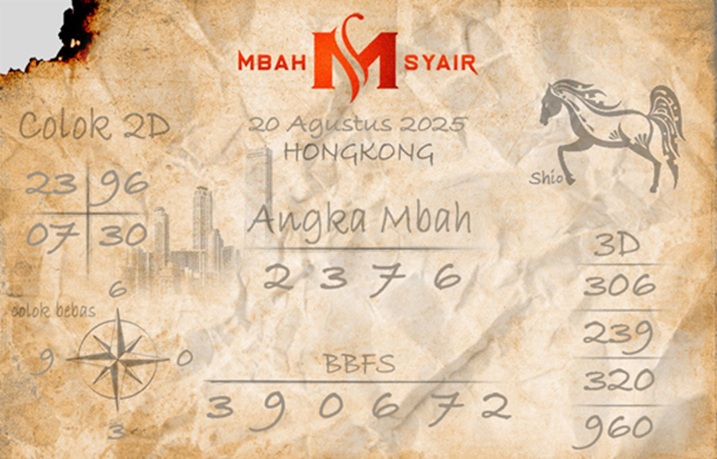 MBAH M SYAIR
20 Agustus 2025
HONGKONG
Colok 2D
23 96
07 30
Shio
Angka Mbah
2 3 7 6
3D
306
239
320
960
colok bebas
6
9 0
3
BBFS
3 9 0 6 7 2